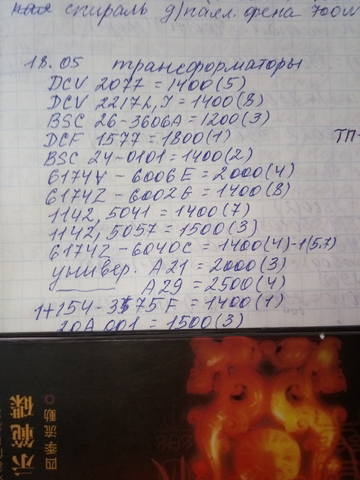 спираль д/паял. фена 700W
18.05 трансформаторы
DCV 2077 = 1400(5)
DCV 2217L,J = 1400(8)
BSC 26-3606A = 1200(3)
DCF 1577 = 1800(1)
ТП-
BSC 24-0101 = 1400(2)
6174V - 6006E = 2000(4)
6174Z - 6002G = 1400(8)
1142, 5041 = 1400(7)
1142, 5057 = 1500(3)
6174Z - 6040C = 1400(4)-1(5.7)
универ. A21 = 2000(3)
A29 = 2500(4)
154-375F = 1400(1)
20A 001 = 1500(3)
示範碟
四季流動